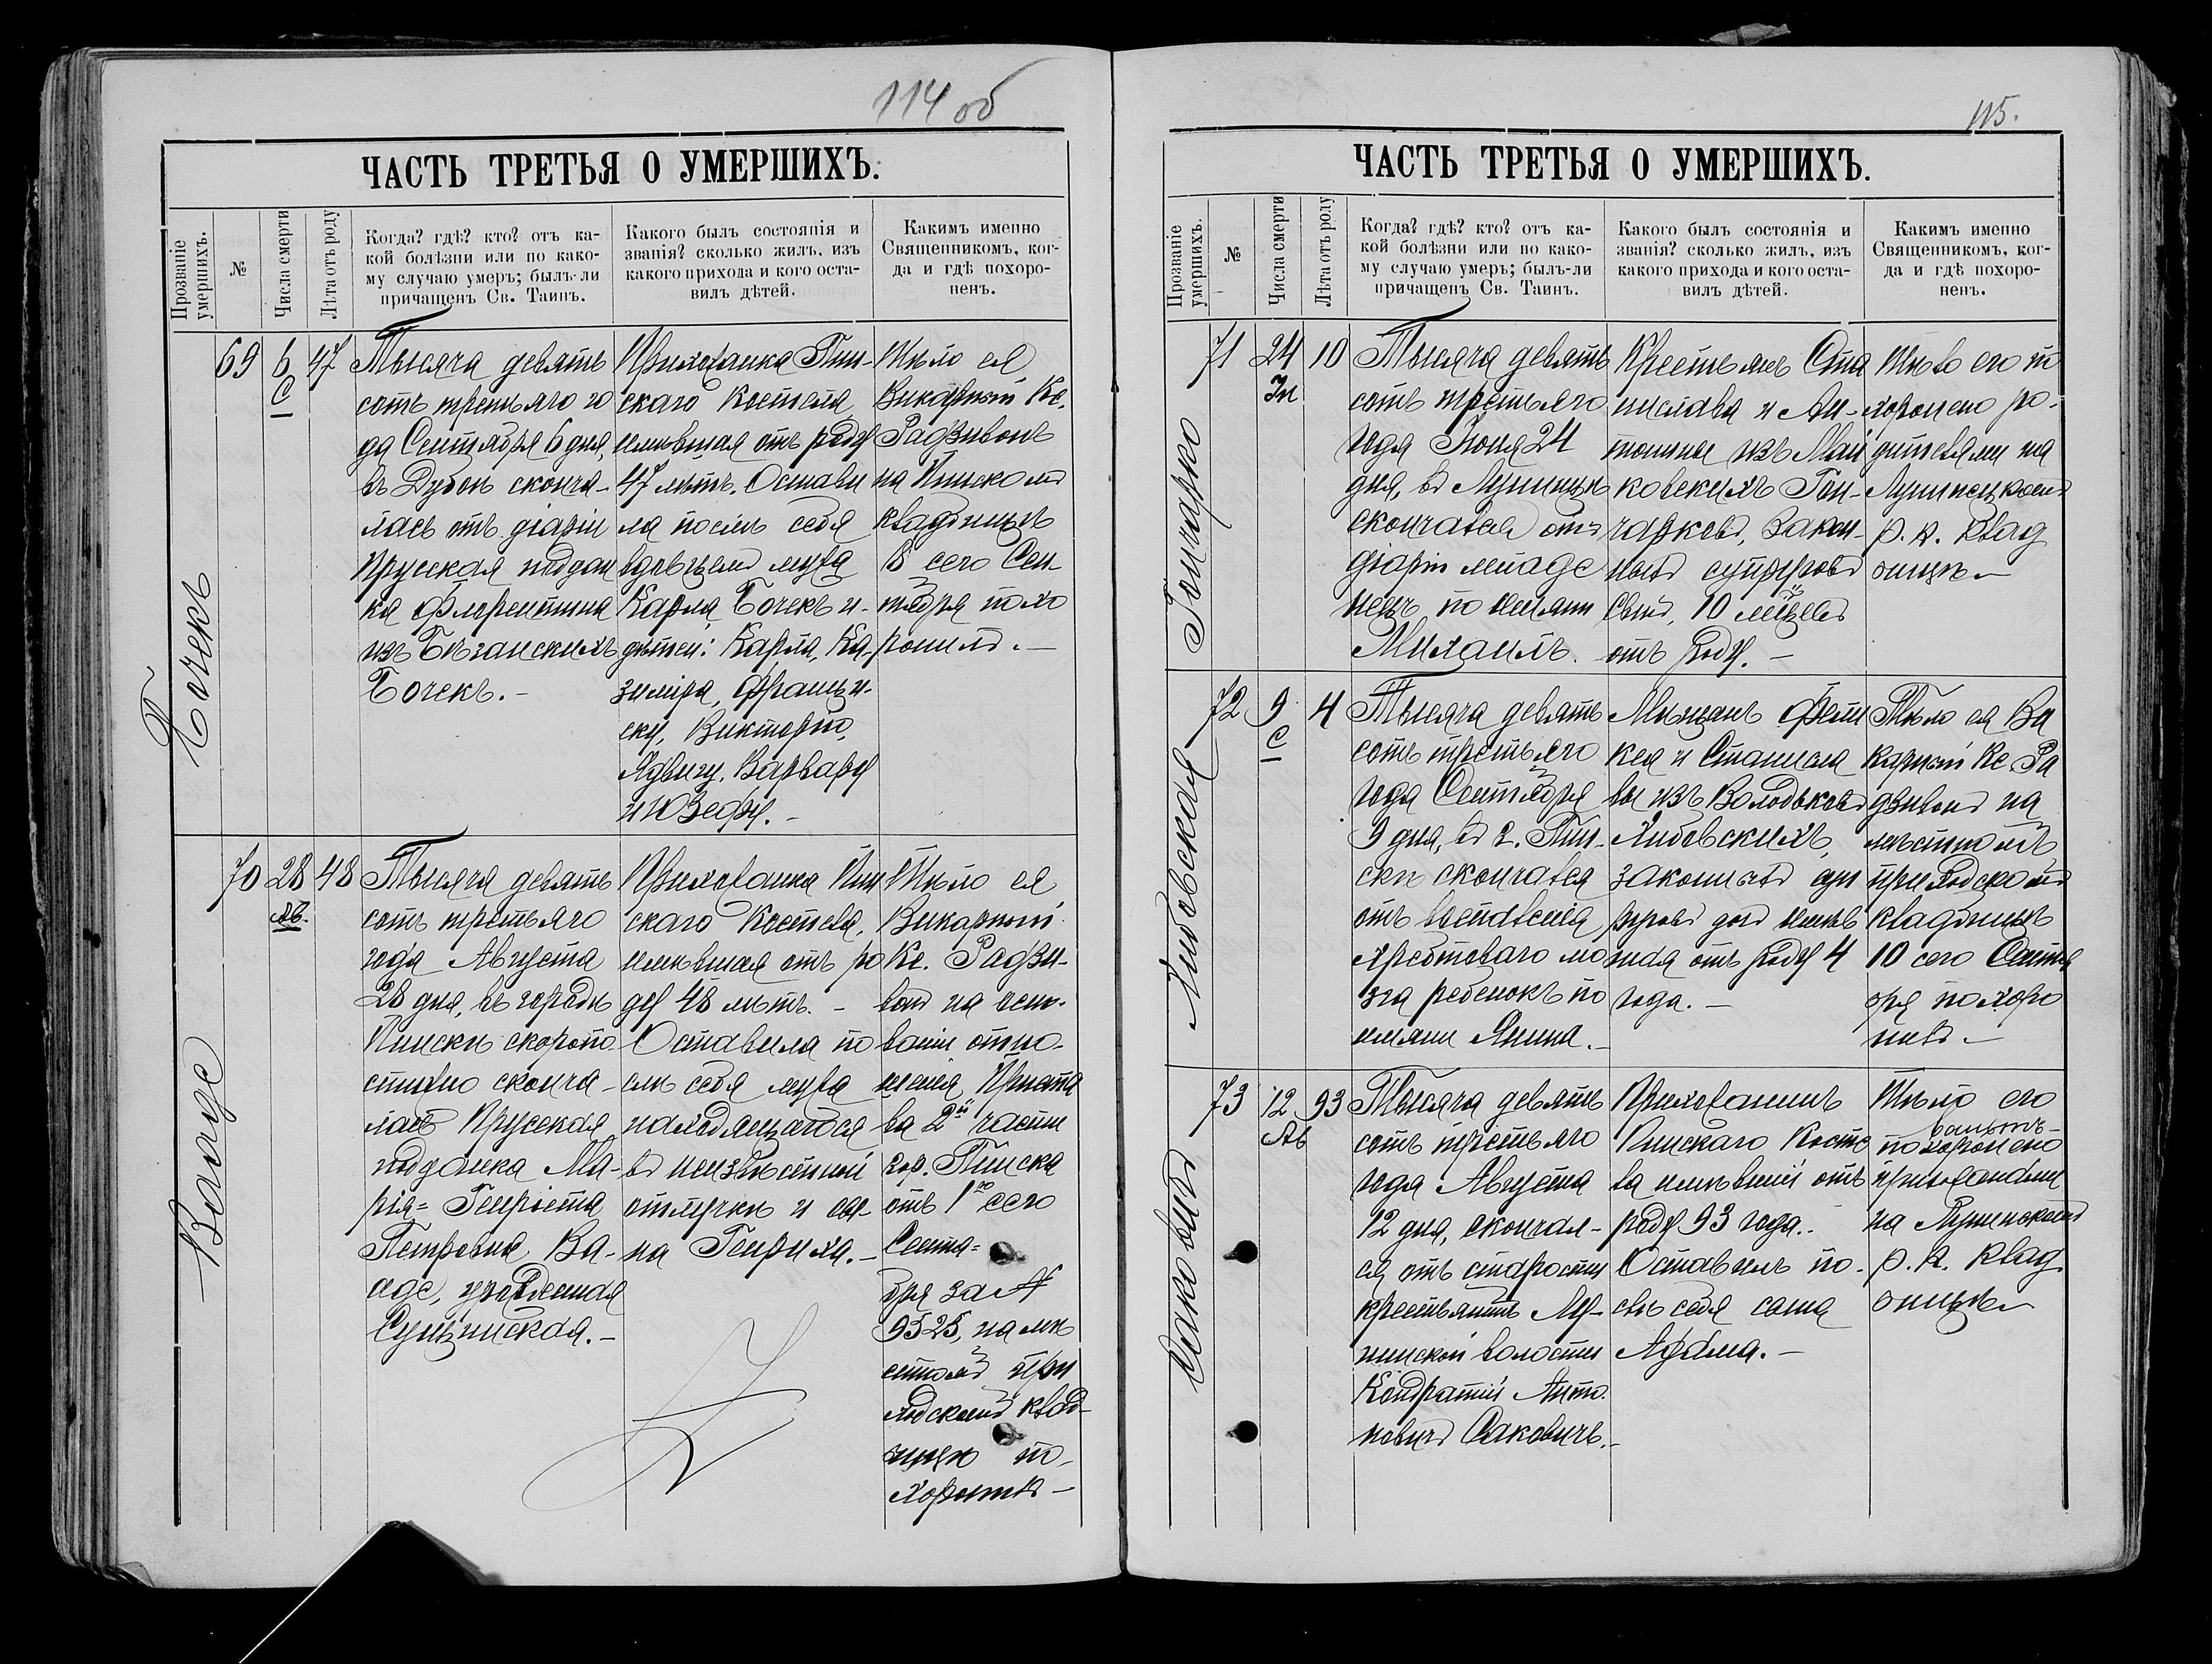 114 об
ЧАСТЬ ТРЕТЬЯ О УМЕРШИХЪ.
Прозваніе умершихъ.
№
Числа смерти
Лѣта отъ роду
Когда? гдѣ? кто? отъ ка-
кой болѣзни или по како-
му случаю умеръ; былъ-ли
причащенъ Св. Таинъ.
Какого былъ состоянія и
званія? сколько жилъ, изъ
какого прихода и кого оста-
вилъ дѣтей.
Какимъ именно
Священникомъ, ког-
да и гдѣ похоро-
ненъ.
Бочекъ
69
6
С
47
Тысяча девять
сотъ третьяго го
да Сентября 6 дня,
въ Дубоѣ сконча-
лась отъ діаріи
Прусская поддан
ка Флорентина
изъ
Бочекъ.-
Прихожанка Пин-
скаго Костела
имѣвшая отъ роду
47 лѣтъ. Остави
ла послѣ себя
вдовцемъ мужа
Карла Бочекъ и
дѣтей: Карла, Ка-
зиміра, Франци-
ску, Викторію,
Ядвигу, Варвару
и Юзефу.-
Тѣло ея
Викарный Кс.
Радзивонъ
на Пинскомъ
кладбищѣ
8 сего Сен-
тября похо
ронилъ.-
Вааде
70
28
Ав.
48
Тысяча девять
сотъ третьяго
года Августа
28 дня, въ городѣ
Пинскѣ скоропо
стижно сконча-
лась Прусская
подданка Ма-
рія=Генріета
Петровна Ва-
аде, урожденная
Прихожанка Пин
скаго Костела,
имѣвшая отъ ро
ду 48 лѣтъ.-
Оставила по
слѣ себя мужа
находящагося
въ неизвѣстной
отлучкѣ и сы-
на Генриха.-
Тѣло ея
Викарный
Кс. Радзи-
вонъ на осно-
ваніи отно-
шенія Приста
ва 2й части
гор. Пинска
отъ 1го сего
Сентя=
бря за №
9525, на мѣ
стномъ при
ходскомъ клад-
бищѣ по-
хоронилъ-
115.
ЧАСТЬ ТРЕТЬЯ О УМЕРШИХЪ.
Прозваніе умершихъ.
№
Числа смерти
Лѣта отъ роду
Когда? гдѣ? кто? отъ ка-
кой болѣзни или по како-
му случаю умеръ; былъ-ли
причащенъ Св. Таинъ.
Какого былъ состоянія и
званія? сколько жилъ, изъ
какого прихода и кого оста-
вилъ дѣтей.
Какимъ именно
Священникомъ, ког-
да и гдѣ похоро-
ненъ.
Гончарко
71
24
Іи
10
Тысяча девять
сотъ третьяго
года Іюня 24
дня, въ Лунинцѣ
скончался отъ
діаріи младе
нецъ по имяни
Михаилъ.
Крестьянъ Ста
нислава и Ан-
тонины изъ Май
ковскихъ Гон-
чарковъ, закон-
ныхъ супруговъ
сынъ, 10 мѣсяцевъ
отъ роду.-
Тѣло его по
хоронено ро-
дителями на
Лунинецкомъ
р. к. клад
бищѣ.-
Хибовская
72
9
С
4
Тысяча девять
сотъ третьяго
года Сентября
9 дня, въ г. Пин-
скѣ скончался
отъ воспаленія
хребтоваго мо
зга ребенокъ по
имяни Янина.-
Мѣщанъ Фели
кса и Станисла
вы изъ Володьковъ
Хибовскихъ,
законныхъ суп
руговъ дочь имѣв
шая отъ роду 4
года.-
Тѣло ея Ви
карный Кс. Ра
дзивонъ на
мѣстномъ
приходскомъ
кладбищѣ
10 сего Сентя
бря похоро
нилъ.-
Саковичъ
73
12
Ав
93
Тысяча девять
сотъ третьяго
года Августа
12 дня, скончал-
ся отъ старости
крестьянинъ Лу-
нинской волости
Кондратій Анто-
новичъ Саковичъ.-
Прихожанинъ
Пинскаго Косте
ла имѣвшій отъ
роду 93 года.-
Оставилъ по-
слѣ себя сына
Адама.-
Тѣло его
похоронено
прихожанами
на Лунинскомъ
р. к. клад
бищѣ